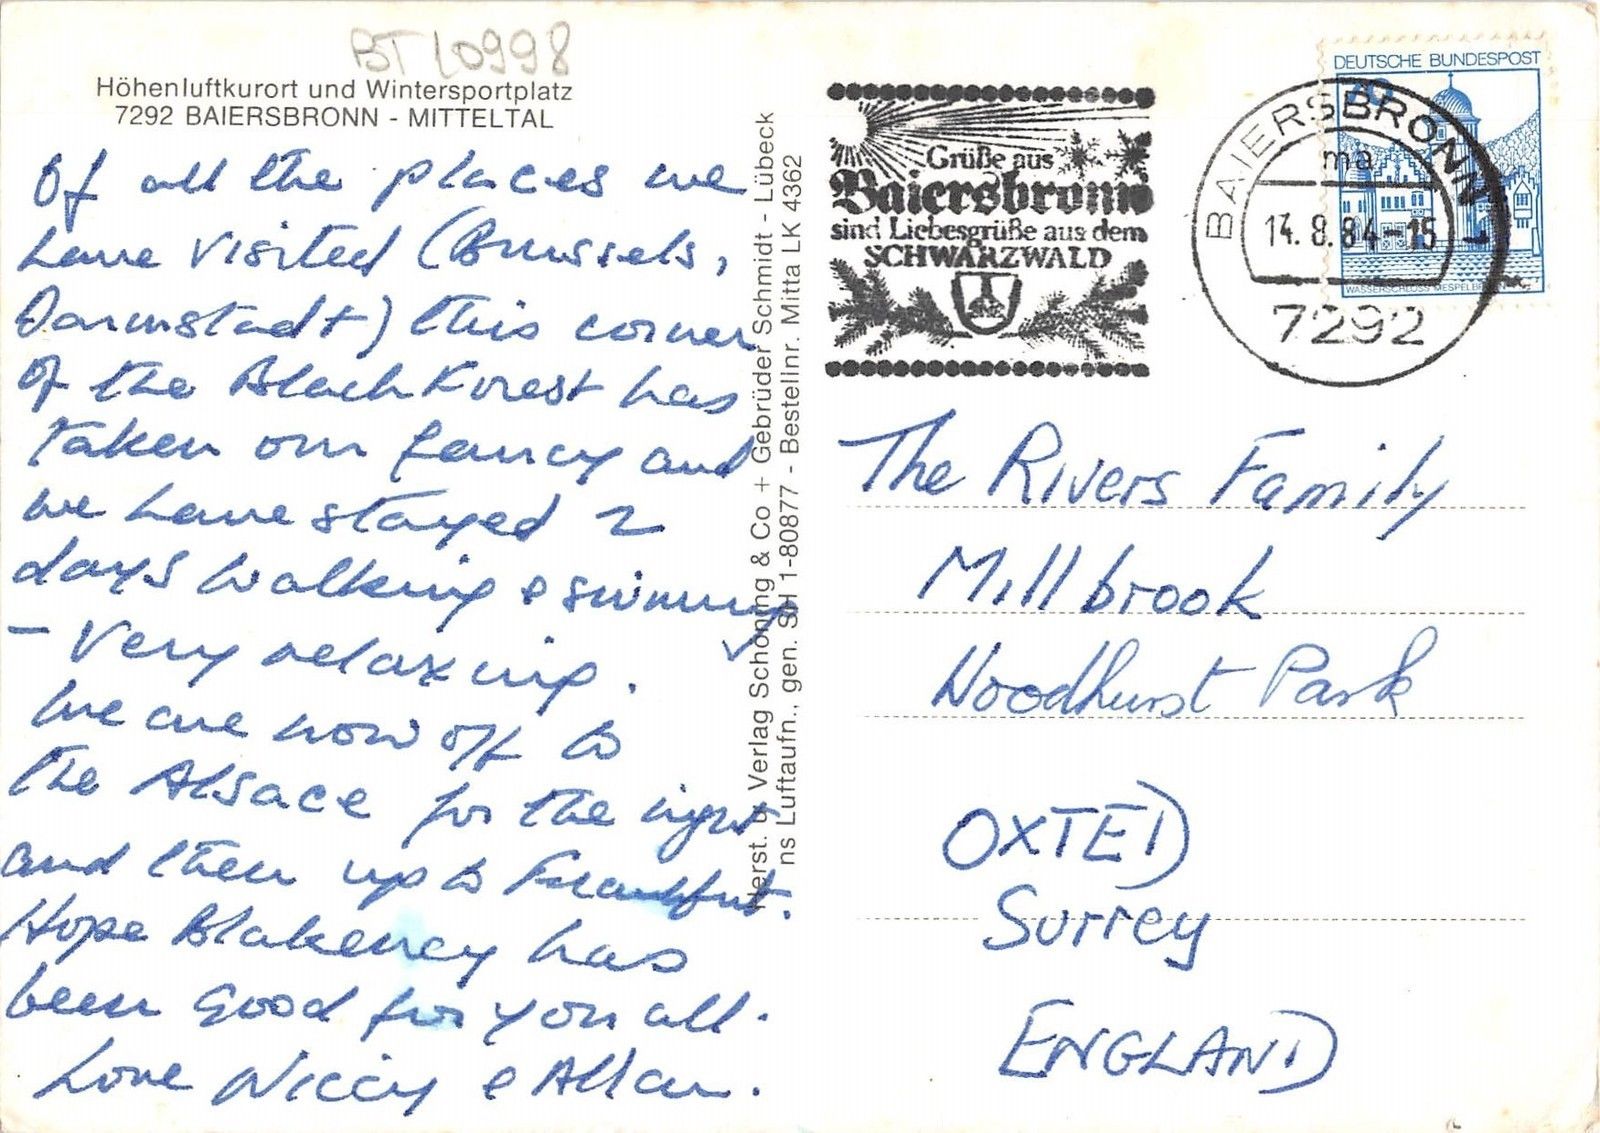 BT10998
Höhenluftkurort und Wintersportplatz
7292 BAIERSBRONN - MITTELTAL
Of all the places we
have visited (Brussels,
Darmstadt) this corner
of the Black Forest has
taken our fancy and
we have stayed 2
days walking & swimming
- Very relaxing.
We are now off to
the Alsace for the night
and then up to Frankfurt.
Hope Blakeney has
been good for you all.
Love Niccy & Allan.
Herst. u. Verlag Schöning & Co + Gebrüder Schmidt - Lübeck
ns Luftaufn., gen. SH 1-80877 - Bestellnr. Mitta LK 4362
Grüße aus
Baiersbronn
sind Liebesgrüße aus dem
SCHWARZWALD
DEUTSCHE BUNDESPOST
70
WASSERSCHLOSS MESPELBRUNN
BAIERSBRONN 1
ma
14.8.84-15
7292
The Rivers Family
Millbrook
Woodhurst Park
OXTED
Surrey
ENGLAND